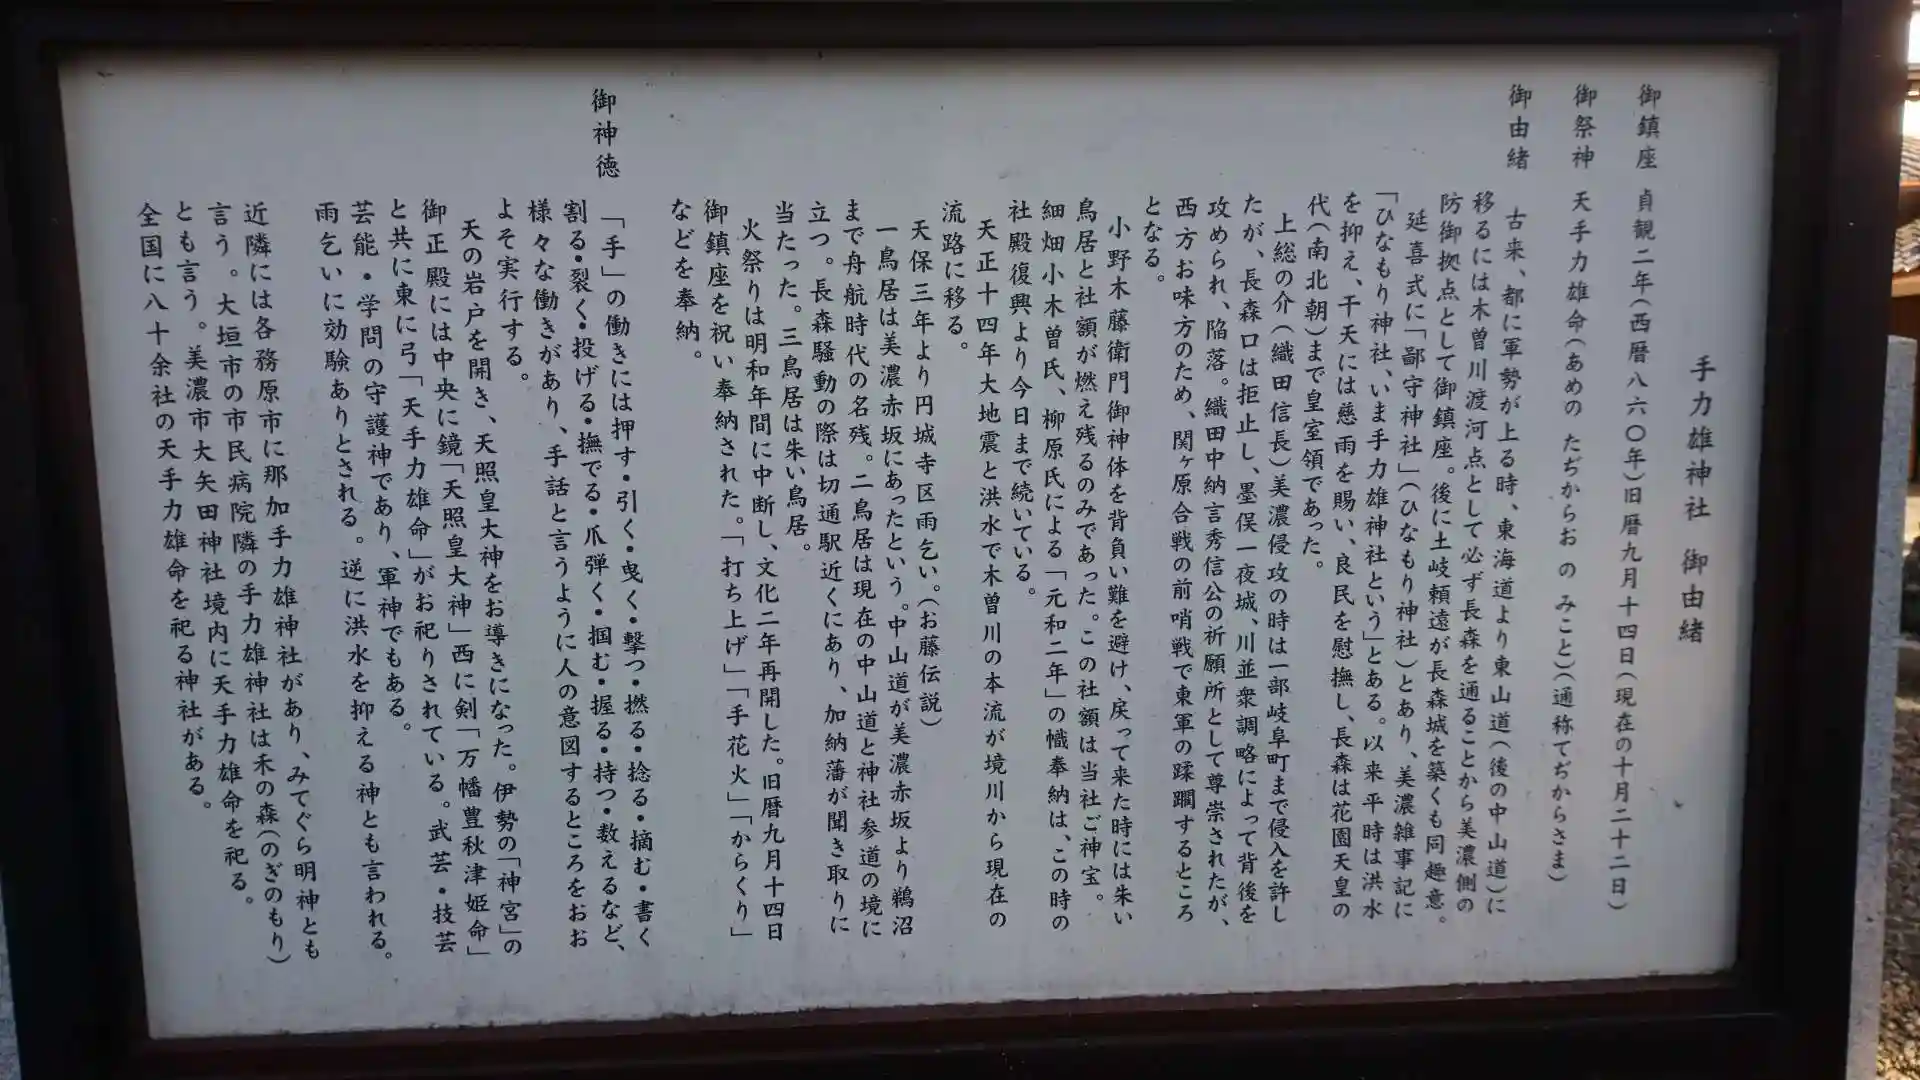 手力雄神社 御由緒
御鎮座 貞観二年(西暦八六〇年)旧暦九月十四日(現在の十月二十二日)
御祭神 天手力雄命(あめの たぢからお の みこと)(通称てぢからさま)
御由緒 古来、都に軍勢が上る時、東海道より東山道(後の中山道)に
移るには木曽川渡河点として必ず長森を通ることから美濃側の
防御拠点として御鎮座。後に土岐頼遠が長森城を築くも同趣意。
延喜式に「鄙守神社」(ひなもり神社)とあり、美濃雑事記に
「ひなもり神社、いま手力雄神社という」とある。以来平時は洪水
を抑え、干天には慈雨を賜い、良民を慰撫し、長森は花園天皇の
代(南北朝)まで皇室領であった。
上総の介(織田信長)美濃侵攻の時は一部岐阜町まで侵入を許し
たが、長森口は拒止し、墨俣一夜城、川並衆調略によって背後を
攻められ、陥落。織田中納言秀信公の祈願所として尊崇されたが、
西方お味方のため、関ヶ原合戦の前哨戦で東軍の蹂躙するところ
となる。
小野木藤衛門御神体を背負い難を避け、戻って来た時には朱い
鳥居と社額が燃え残るのみであった。この社額は当社ご神宝。
細畑小木曽氏、柳原氏による「元和二年」の幟奉納は、この時の
社殿復興より今日まで続いている。
天正十四年大地震と洪水で木曽川の本流が境川から現在の
流路に移る。
天保三年より円城寺区雨乞い。(お藤伝説)
一鳥居は美濃赤坂にあったという。中山道が美濃赤坂より鵜沼
まで舟航時代の名残。二鳥居は現在の中山道と神社参道の境に
立つ。長森騒動の際は切通駅近くにあり、加納藩が聞き取りに
当たった。三鳥居は朱い鳥居。
火祭りは明和年間に中断し、文化二年再開した。旧暦九月十四日
御鎮座を祝い奉納された。「打ち上げ」「手花火」「からくり」
などを奉納。
御神徳 「手」の働きには押す・引く・曳く・撃つ・撚る・捻る・摘む・書く
割る・裂く・投げる・撫でる・爪弾く・掴む・握る・持つ・数えるなど、
様々な働きがあり、手話と言うように人の意図するところをおお
よそ実行する。
天の岩戸を開き、天照皇大神をお導きになった。伊勢の「神宮」の
御正殿には中央に鏡「天照皇大神」西に剣「万幡豊秋津姫命」
と共に東に弓「天手力雄命」がお祀りされている。武芸・技芸
芸能・学問の守護神であり、軍神でもある。
雨乞いに効験ありとされる。逆に洪水を抑える神とも言われる。
近隣には各務原市に那加手力雄神社があり、みてぐら明神とも
言う。大垣市の市民病院隣の手力雄神社は禾の森(のぎのもり)
とも言う。美濃市大矢田神社境内に天手力雄命を祀る。
全国に八十余社の天手力雄命を祀る神社がある。